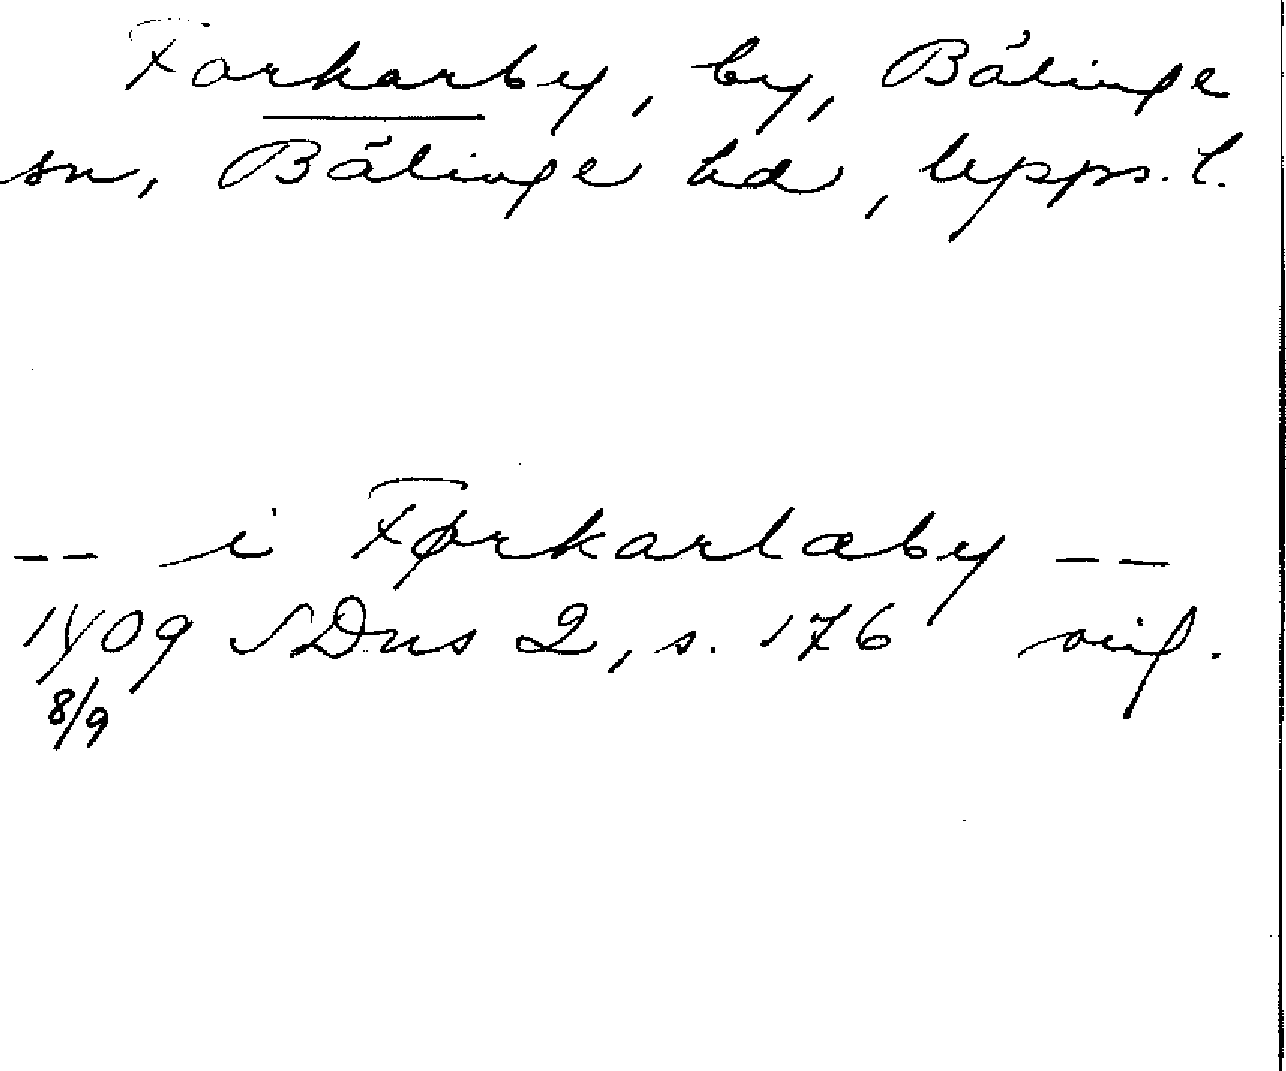 Forkarby, by, Bälinge
sn, Bälinge hd, Upps. l.
-- i Førkarlaby --
1409 SDns 2, s. 176 orig.
8/9